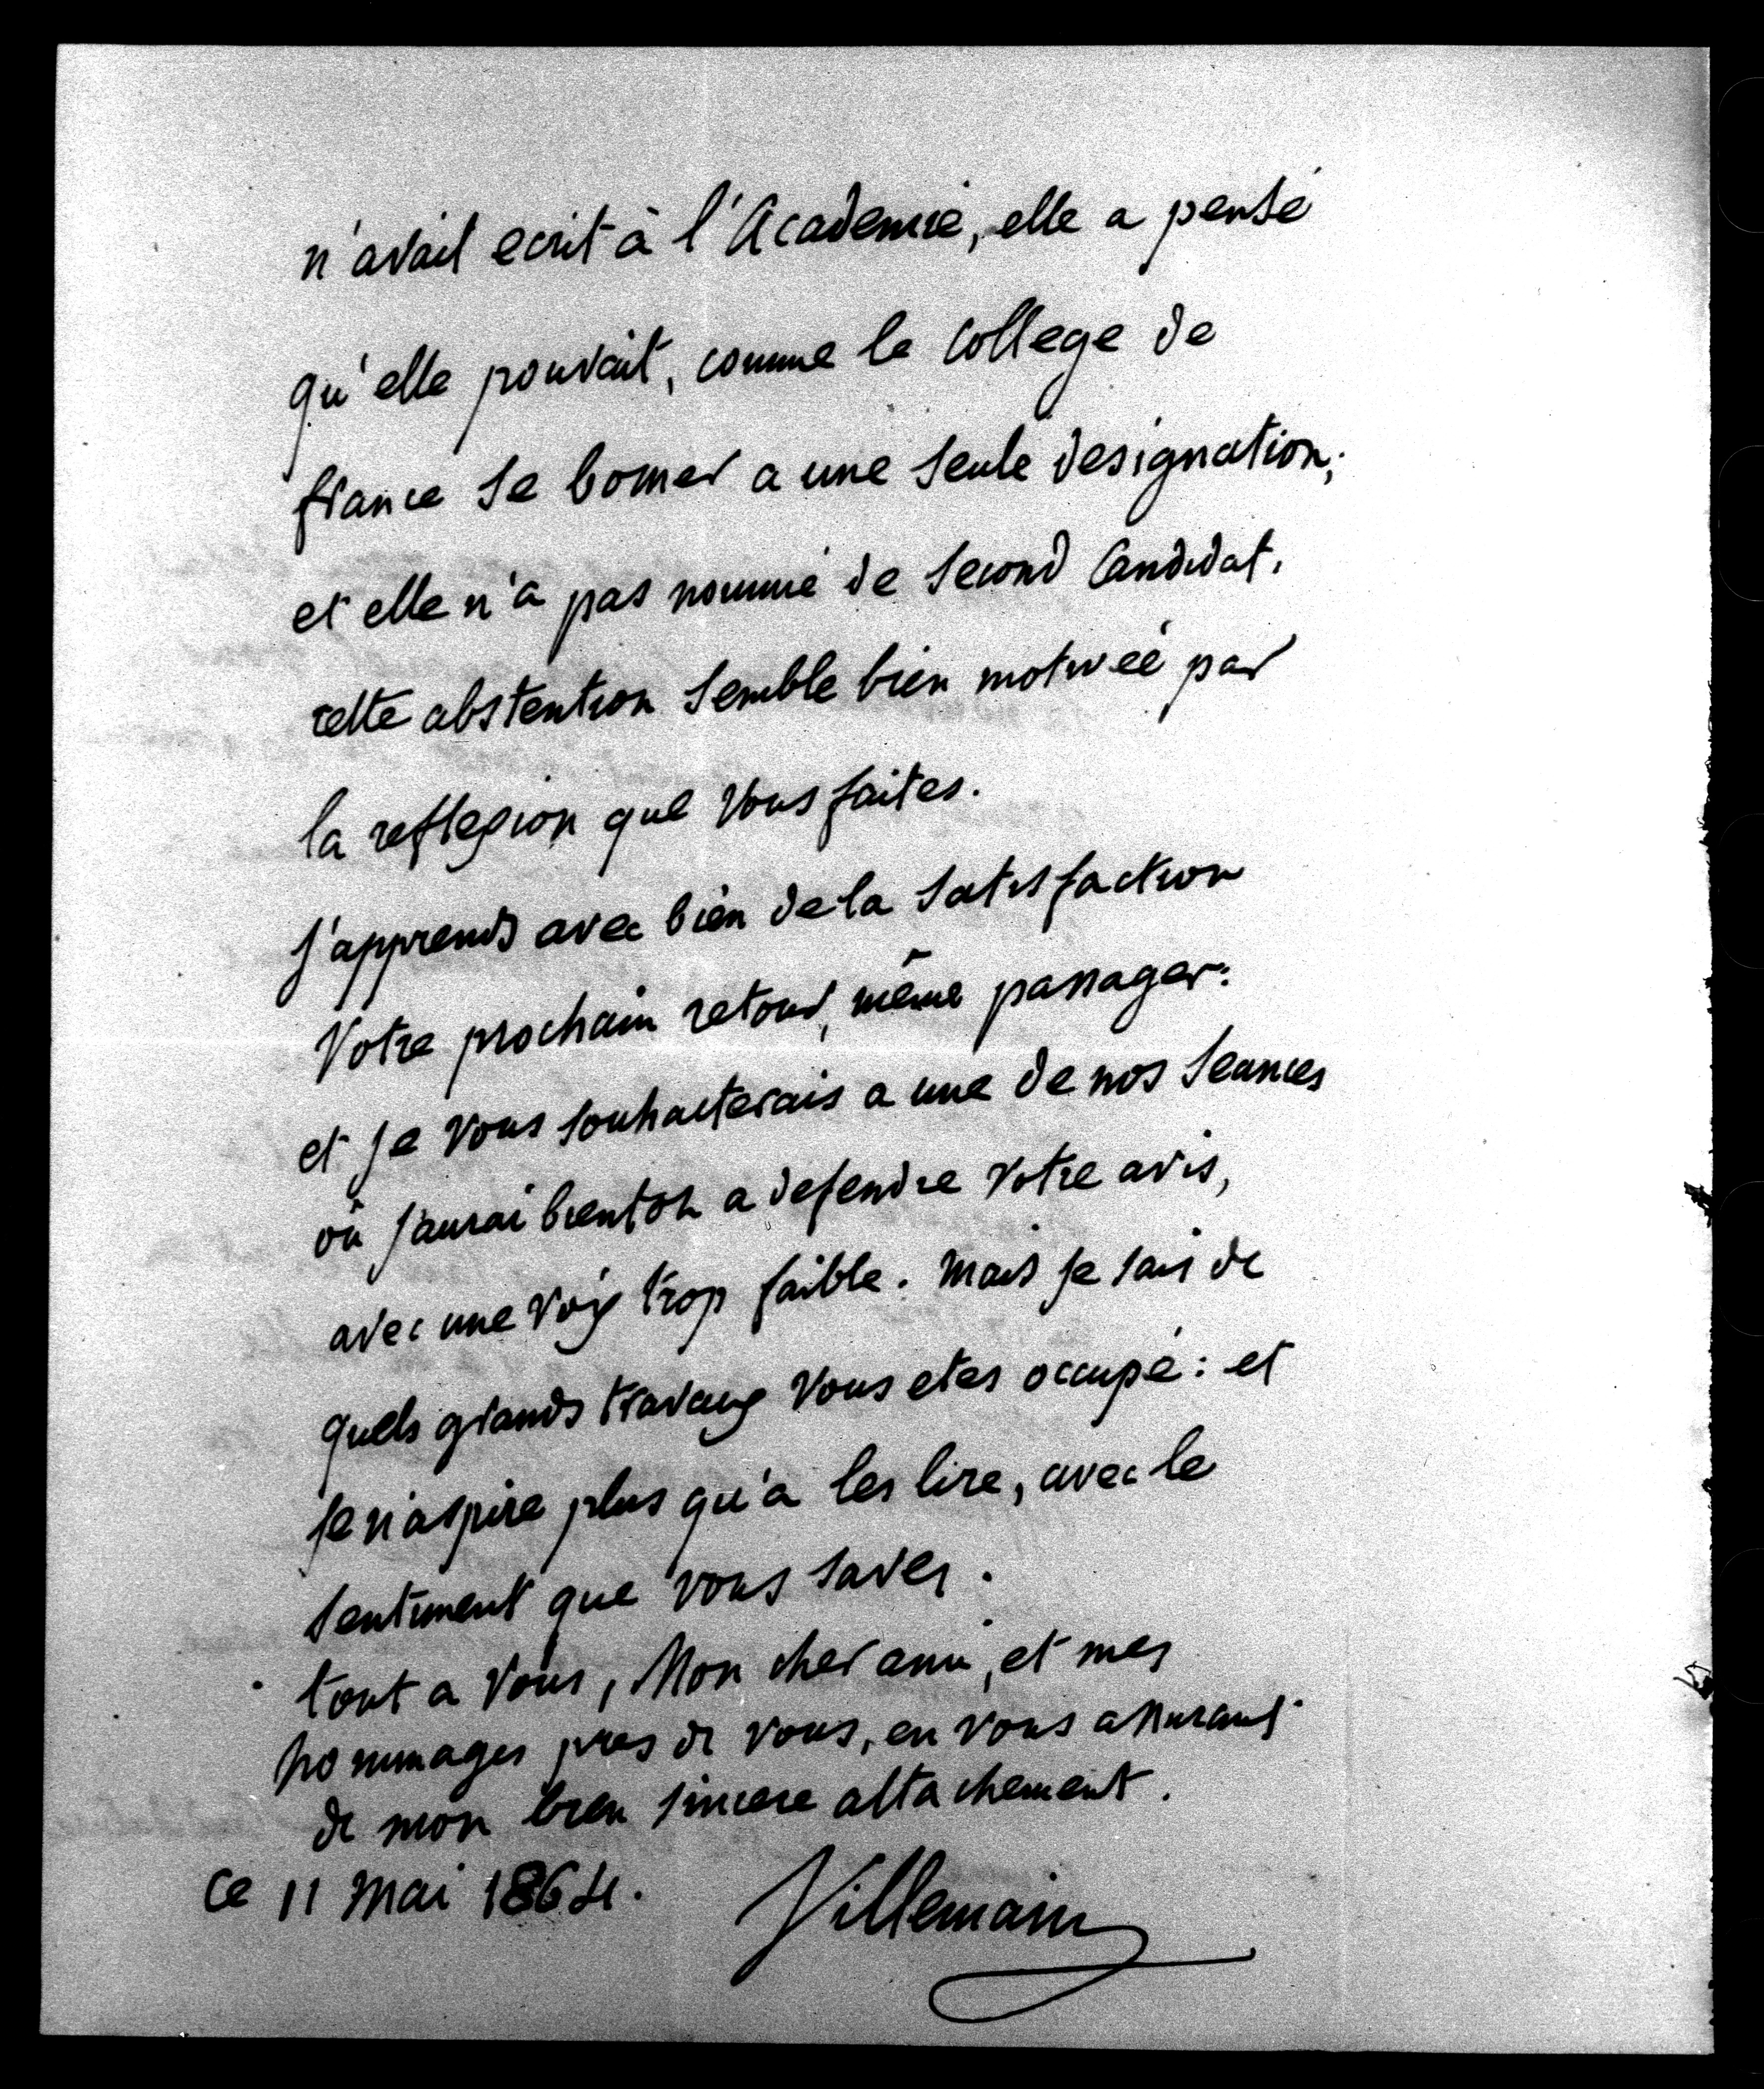 n'avait ecrit à l'Academie, elle a pensé
qu'elle pouvait, comme le College de
france se borner a une seule designation;
et elle n'a pas nommé de second Candidat.
cette abstention semble bien motivée par
la reflexion que vous faites.
J'apprends avec bien de la satisfaction
Votre prochain retour, même passager:
et je vous souhaiterais a une de nos seances
où j'aurai bientot a defendre votre avis,
avec une voix trop faible. Mais je sais de
quels grands travaux vous etes occupé: et
je n'aspire plus qu'a les lire, avec le
sentiment que vous savez.
tout a vous, Mon cher ami, et mes
hommages pres de vous, en vous assurant
de mon bien sincere attachement.
Ce 11 Mai 1864.
Villemain